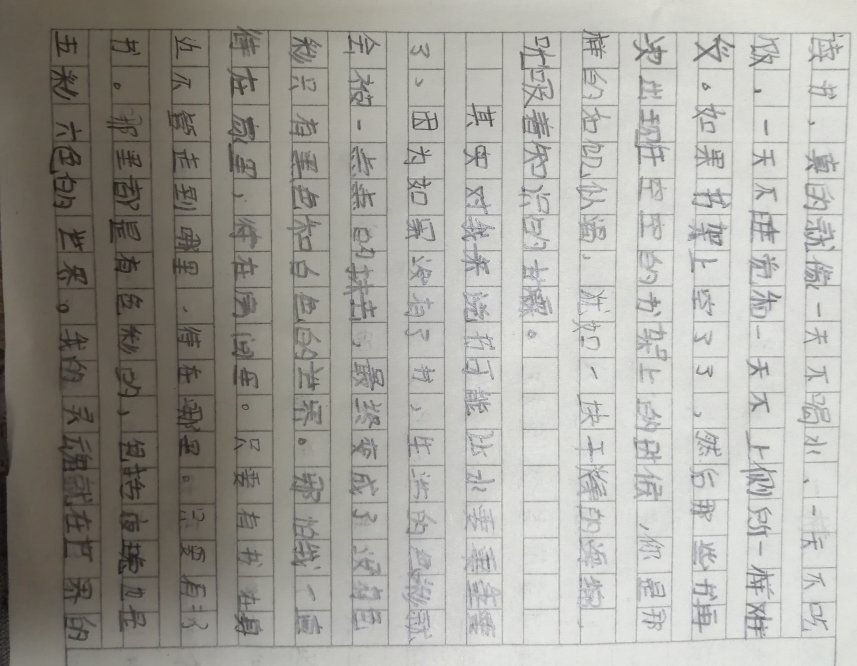 读书，真的就像一天不喝水、一天不吃
饭、一天不睡觉和一天不上侧所一样难
受。如果书架上空了了，然后那些书再
次出现在空空的书架上的时候，你是那
样的和饥似渴，犹如一块干燥的海绵，
吮吸着知识的甘露。
其实对我来说书可能比水要重重要
了，因为如果没有了书，生活的色彩就
全被一点点的抹去，最终变成了没有色
彩只有黑色和白色的世界。哪怕我一直
待在家里，待在房间里。只要有书在身
边不管走到哪里，待在哪里。只要有了
书。那里都是有色彩的，包括夜晚也是
五彩六色的世界。我的灵魂就在世界的